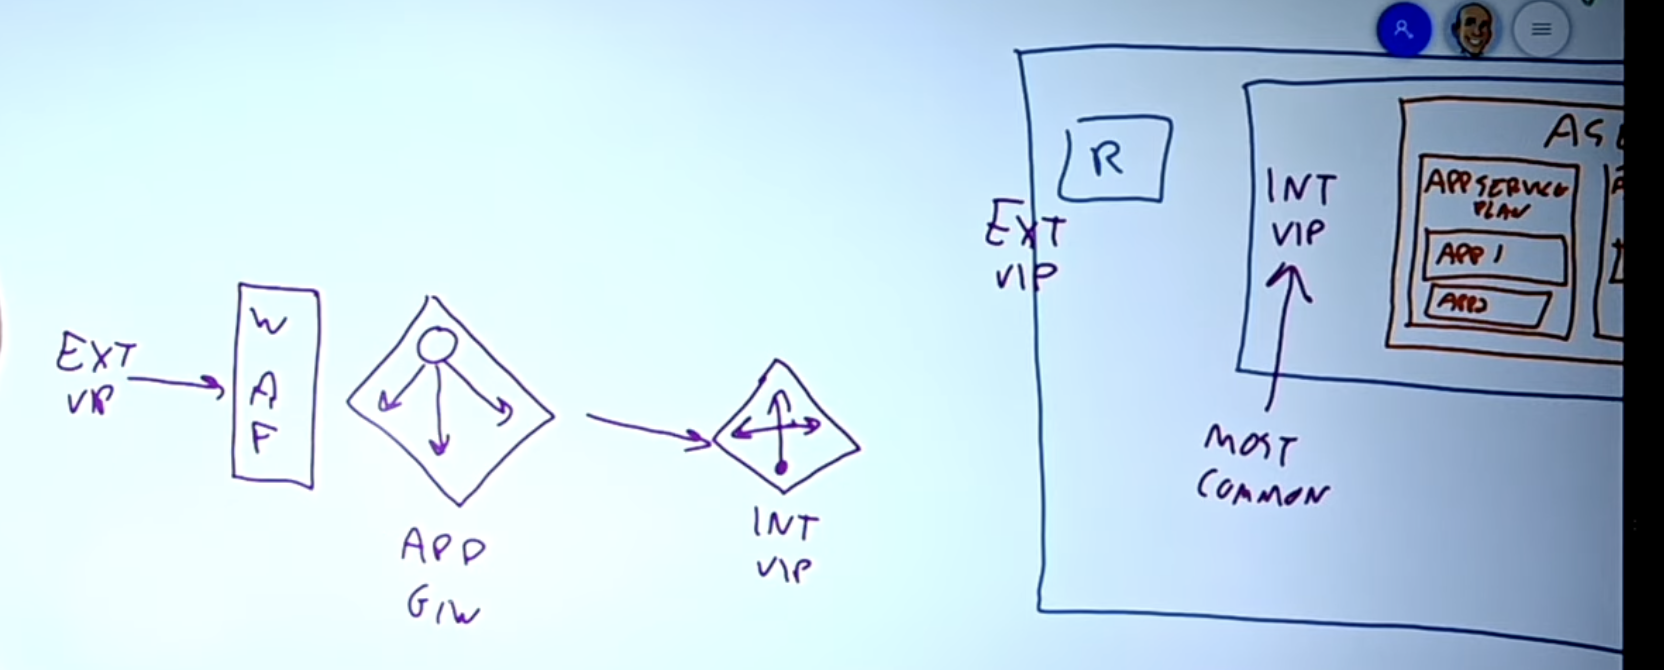 EXT
VIP
W
A
F
APP
G/W
INT
VIP
EXT
VIP
R
INT
VIP
MOST
COMMON
AS
APP SERVICE
PLAN
APP 1
APP2